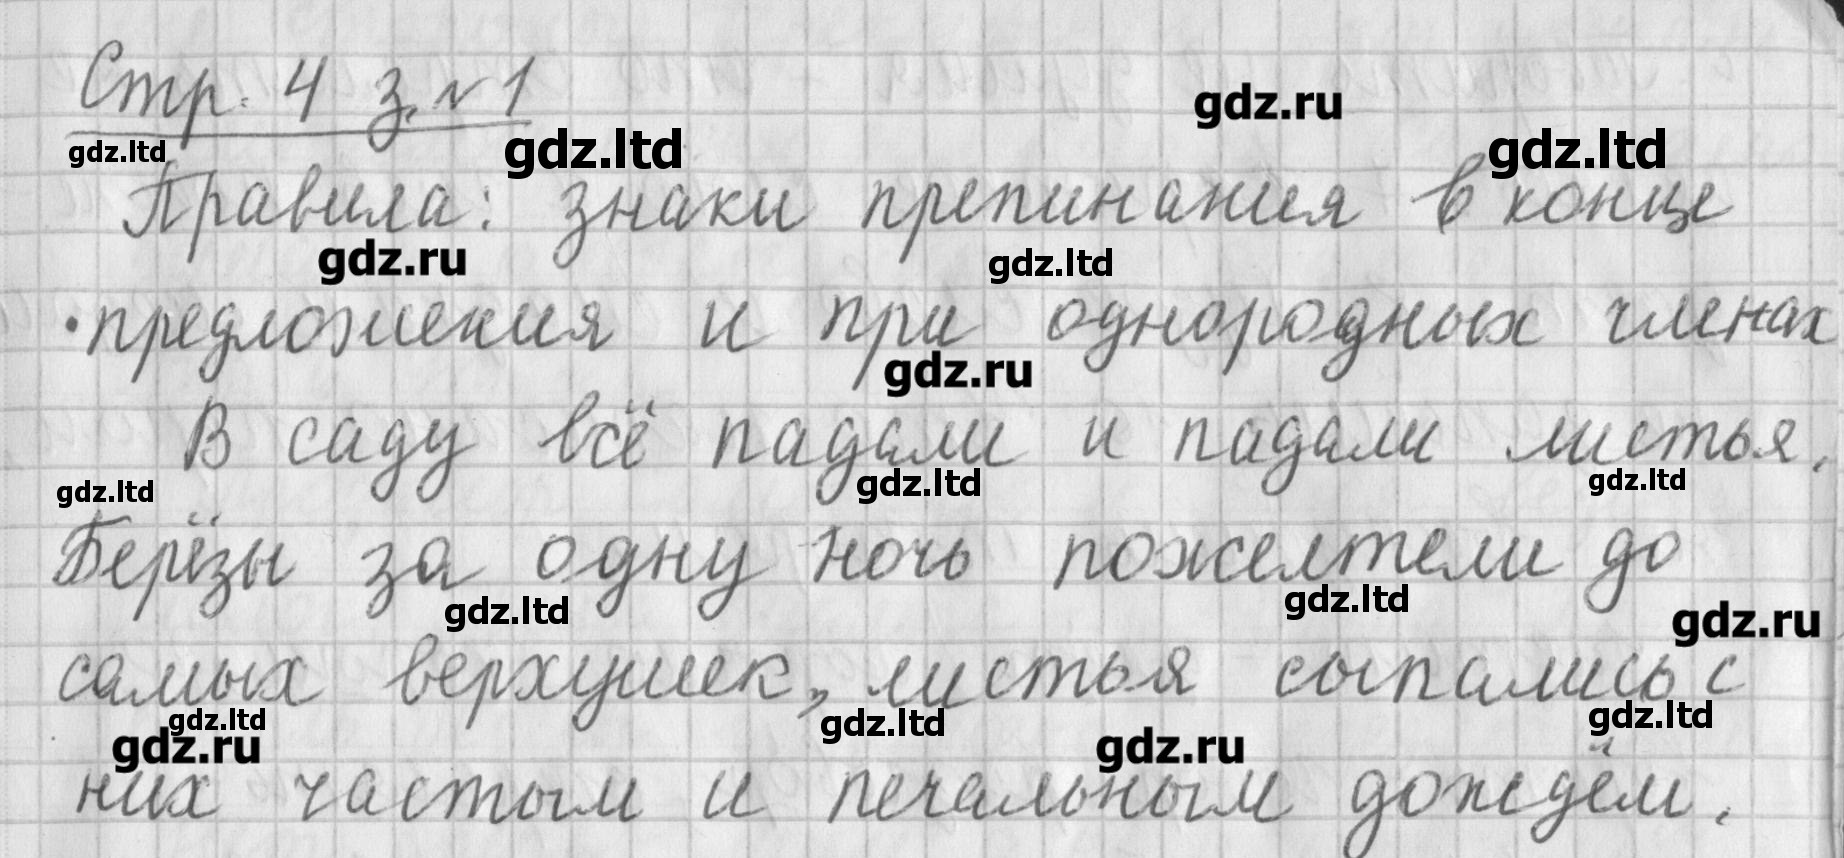 Стр. 4 з. №1
gdz.ru
gdz.ltd gdz.ltd gdz.ltd
Правила: знаки препинания в конце
gdz.ru gdz.ltd
предложения и при однородных членах
gdz.ru
В саду всё падали и падали листья.
gdz.ltd gdz.ltd gdz.ltd
Берёзы за одну ночь пожелтели до
gdz.ltd gdz.ltd gdz.ru
самых верхушек, листья сыпались с
gdz.ltd gdz.ltd gdz.ltd
gdz.ru gdz.ru
них частым и печальным дождём.